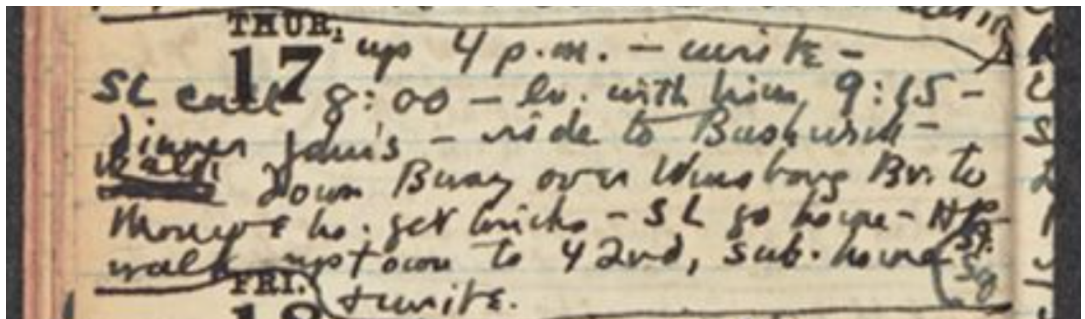 THUR.
17 up 4 p.m. — write —
SL call 8:00 — lv. with him, 9:15 —
dinner John's — ride to Bushwick —
walk down Bway over Wmsburg Br. to
ho. get bricks — SL go home — HP
walk uptown to 42nd, sub. home
FRI. + write.
18